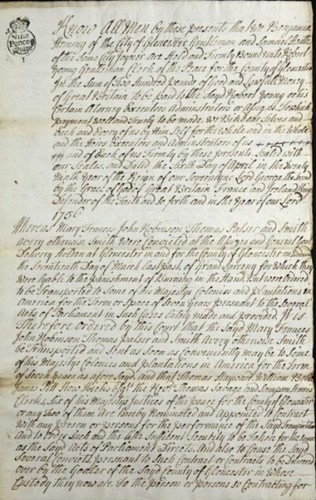 Know All Men by these presents that We Benjamin
Hening of the City of Gloucester Gentleman and Samuel
of the same City Joyner are Held and firmly Bound unto Robert
Young Gentleman Clerk of the Peace for the County of Gloucester
In the Sum of Two Hundred Pounds of Good and Lawfull Money
of Great Britain to be paid to the said Robert Young or his
Certain Attorney Executors Administrators or Assigns To which
payment well and truely to be made We Bind our selves and
Each and Every of us by Him self for the Whole and in the Whole
and the Heirs Executors and Administrators of us
and of Each of us firmly by these presents Sealed with
our Seals and Dated the Day of April in the
Ninth Year of the Reign of our Sovereign Lord George the
by the Grace of God of Great Britain France and Ireland King
Defender of the Faith and so forth and in the Year of our Lord
1736
Whereas Mary Frances John Robinson Thomas Palser and Smith
Avery otherwise Smith Were Convicted at the Assizes and General Goal
Delivery holden at Gloucester in and for the County of Gloucester
the Day of March last past of Grand Larceny for which they
were lyable to the punishment of Burning in the hand But were Ordered
to be Transported to some of his Majestys Colonies and plantations in
America for the Term or Space of Seven Years pursuant to the several
Acts of Parliament in such Cases lately made and provided. It is
Therefore ordered by this Court that the Said Mary Frances
John Robinson Thomas Palser and Smith Avery otherwise Smith
be Transported and Sent as Soon as conveniently may be to some
of his Majestys Colonies and plantations in America for the Term
or Space of Seven Years and that Thomas Hayward William
Esqrs. and
Clerks of his Majestys Justices of the peace for the County of Gloucester
or any of them Are hereby Nominated and Appointed to Contract
with any person or persons for the performance of the Said Transportation
and to order Such and the like Sufficient Security to be taken for the same
as the Said Acts of Parliament Directs And also to Cause the Said
pursuant to Such Contract or Contracts to be Delivered
over by the Goaler of the Said County of Gloucester in whose
Custody they now are To the person or persons so Contracting for